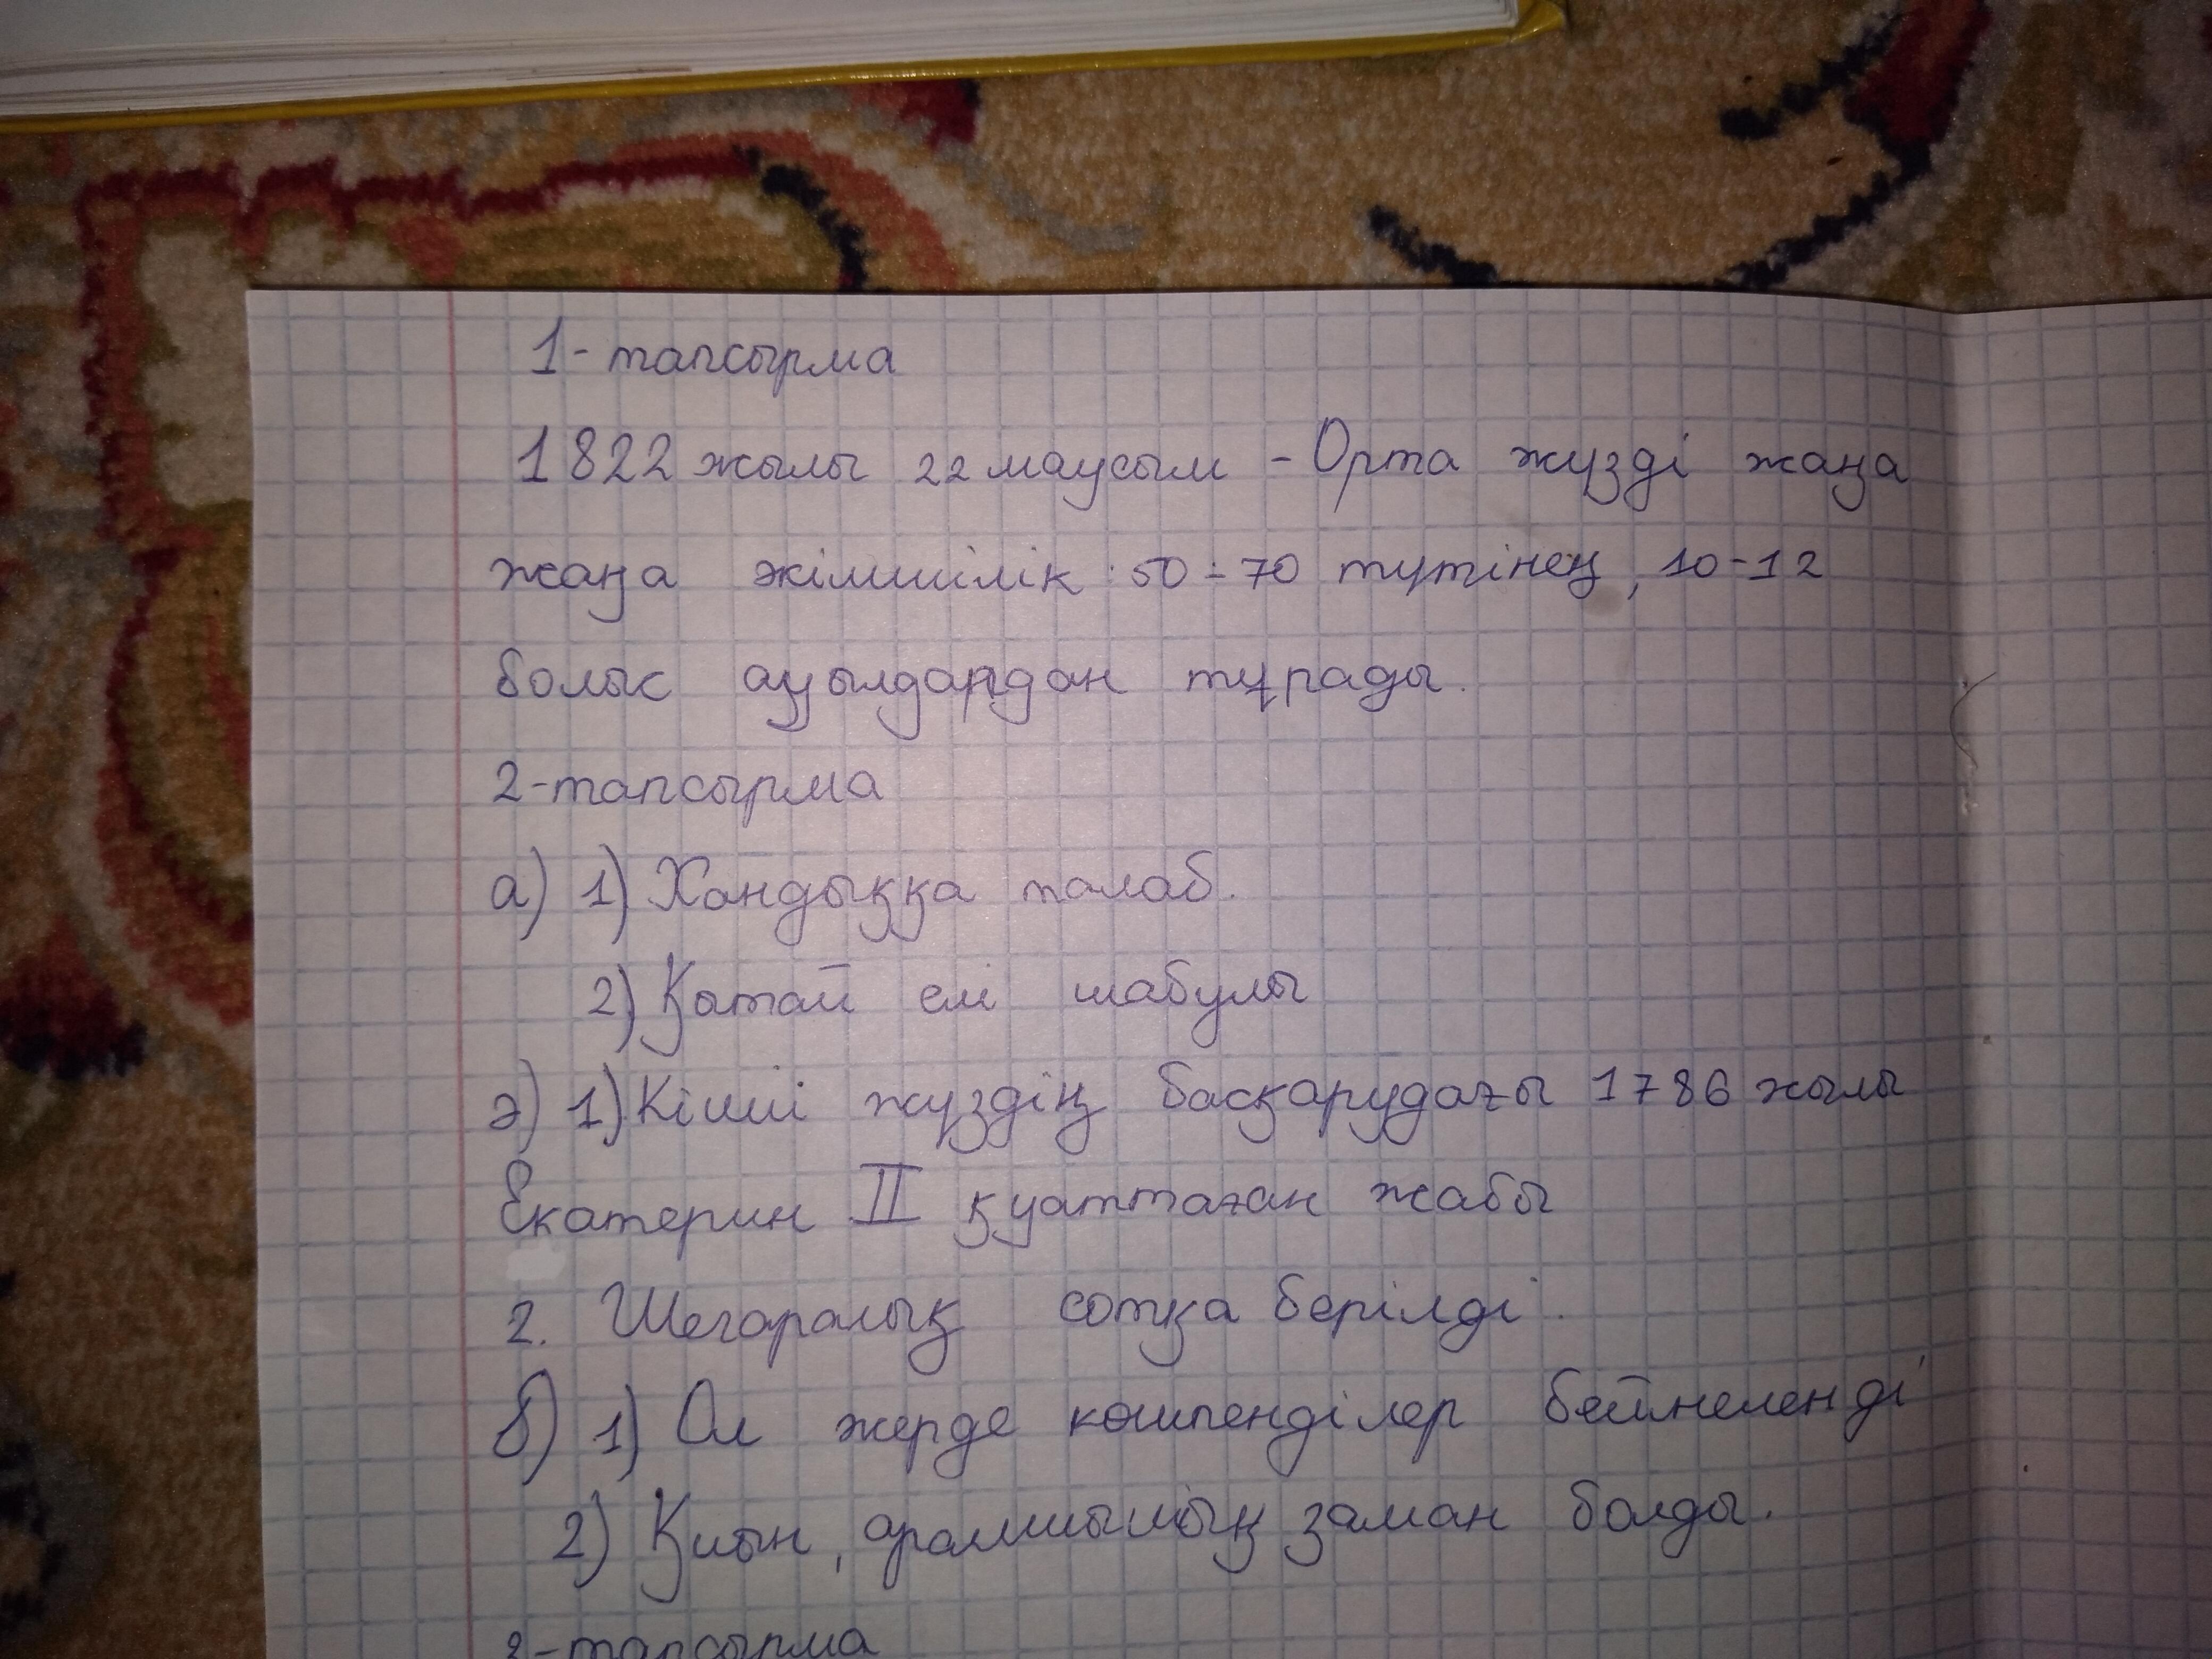 1-тапсырма
1822 жылы 22 маусым - Орта жүзді жаңа
жаңа әкімшілік 50-70 түтінең, 10-12
болыс ауылдардан тұрады.
2-тапсырма
а) 1) Хандыққа талаб.
2) Қатай елі шабулы
ә) 1) Кіші жүздің басқарудағы 1786 жылы
Екатерин II қуаттаған жабы
2. Шегаралық сотқа берілді.
б) 1) Ол жерде көшпенділер бейнеленді
2) Қиын, заман болды.
3-тапсырма